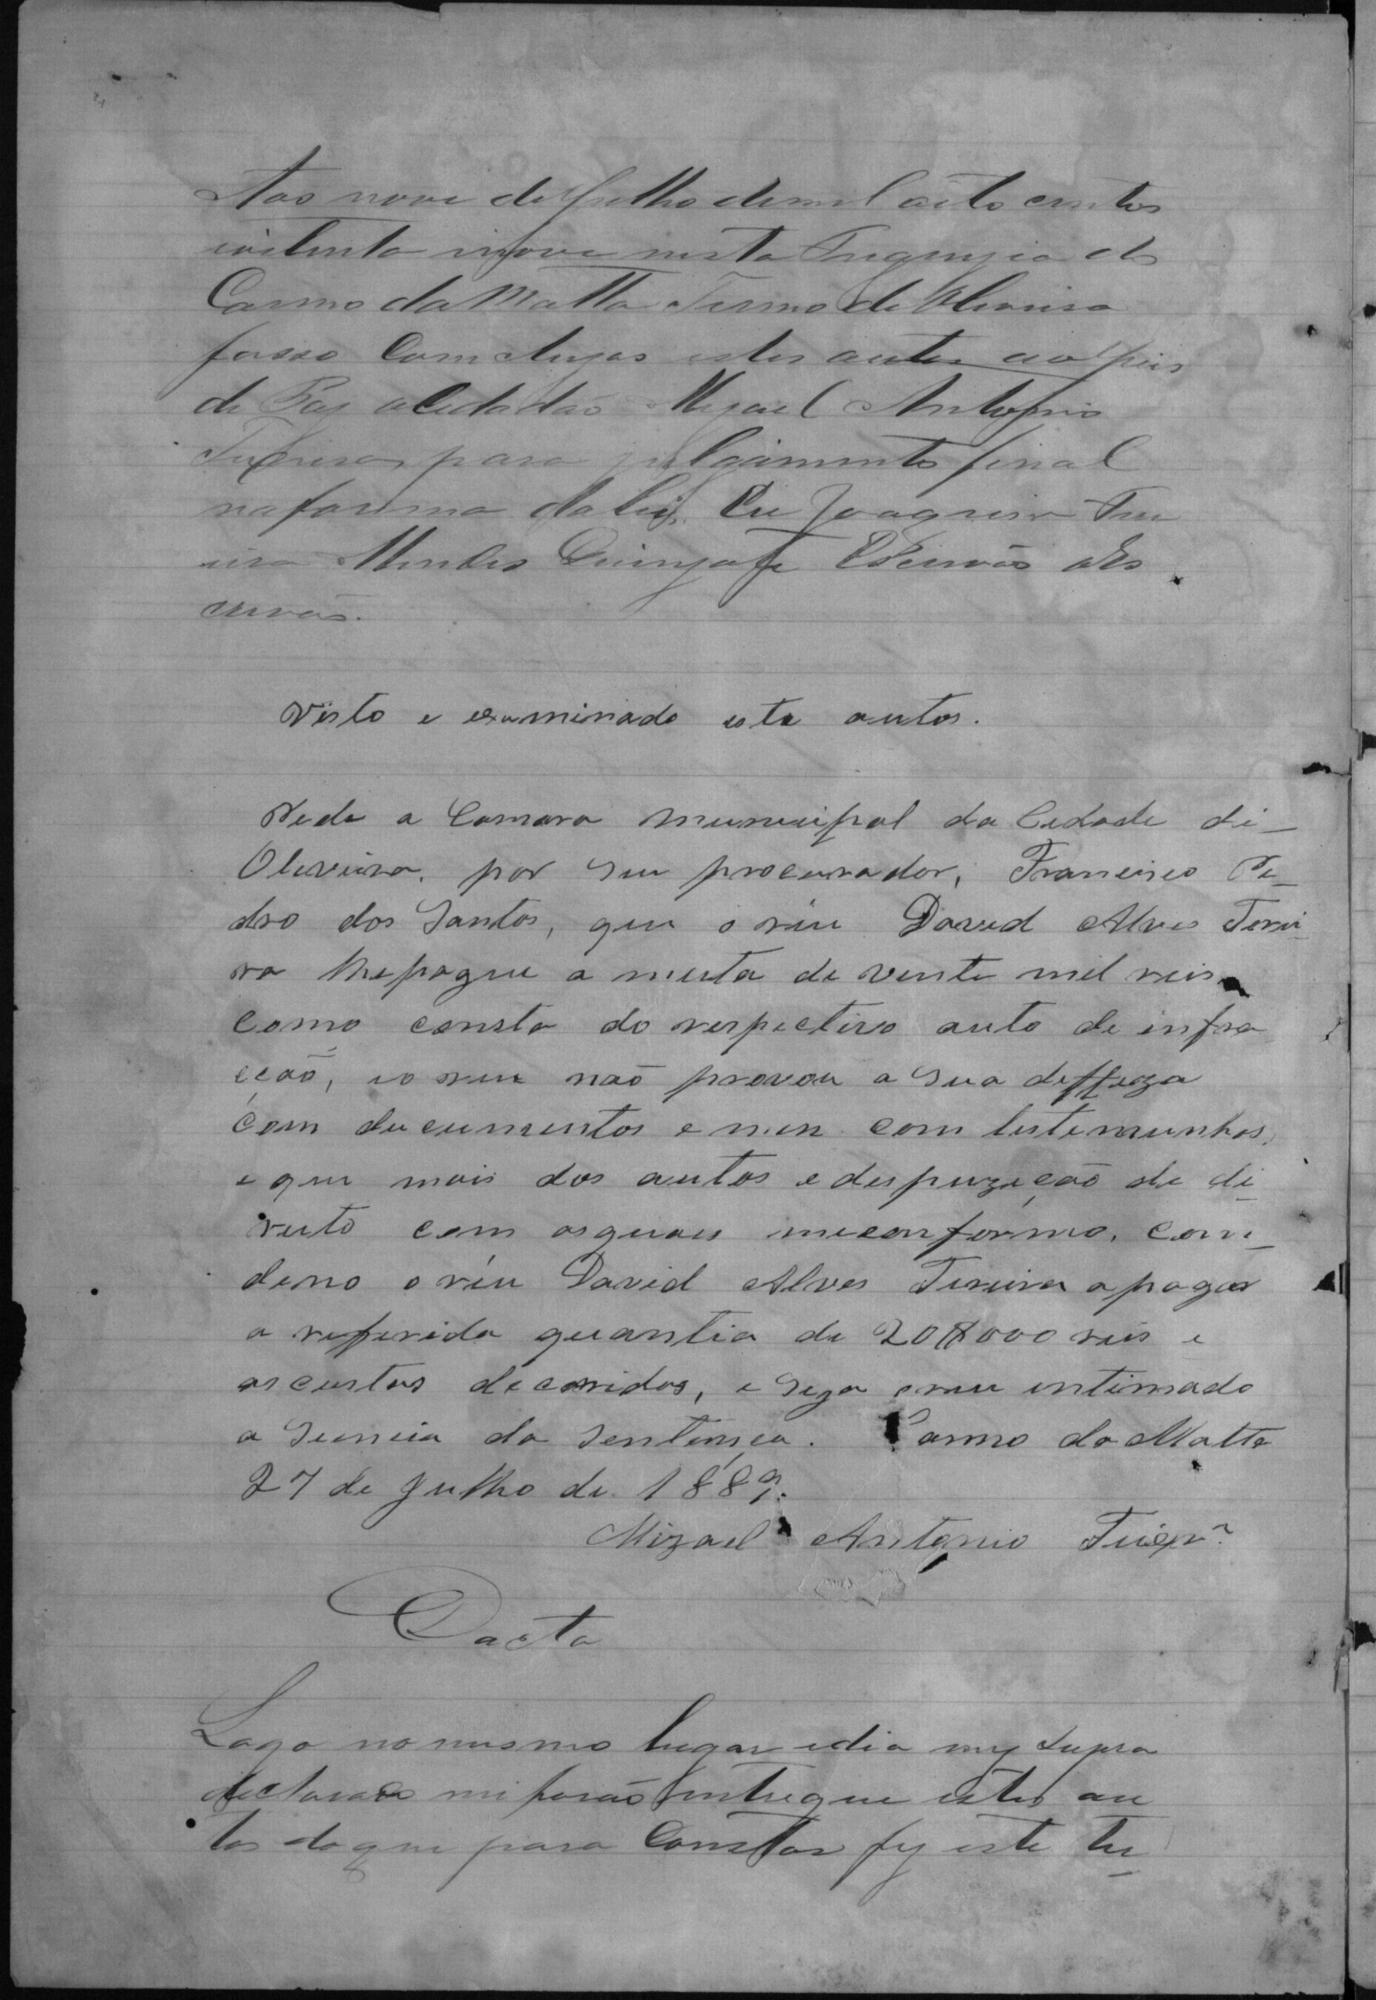 Aos nove de Julho de mil oito centos
eoitenta inove nesta Freguezia do
Carmo da Matta Termo de Oliveira
fasso Comclusos estes autos ao Juis
de Pas oCidadão Mizael Antonio
para julgamento final
na forma da lei. Eu Joaquim Fer
eira Mendes Escrivão o Es
crivão.
Visto e examinado este autos.
Pede a Camara Municipal da Cidade de
Oliveira, por seu procurador, Francisco Pe_
dro dos Santos, que o réu David Alves Ferei_
ra lhepague a multa de vente mil reis,
como consta do respectivo auto de infra
cção, eo reu não provou a sua deffeza
com documentos e nen com testemunhas,
e que mais dos autos edespuzição de di_
reito com osquaes meconformo, con_
deno o réu David Alves Fereira apagar
a referida quantia de 20$000 reis e
as custas decorridas, e seja oreu intimado
a sciencia da sentença. Carmo da Matta
27 de Julho de 1889.
Mizael Antonio
Dacta
Logo nomesmo lugar edia mez supra
declarado me forão entregue estes au
tos do que para Constar fiz este ter_